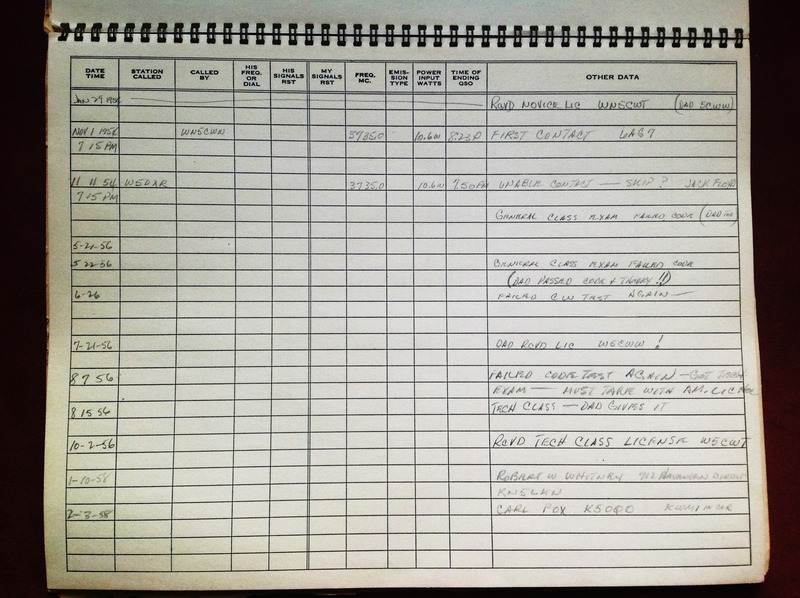 DATE TIME STATION CALLED CALLED BY HIS FREQ. OR DIAL HIS SIGNALS RST MY SIGNALS RST FREQ. MC. EMIS-SION TYPE POWER INPUT WATTS TIME OF ENDING QSO OTHER DATA
JAN 29 1956 RCVD NOVICE LIC WN5CWT (DAD 5CWW)
NOV 1 1956 WN5CWW 37350 10.6W FIRST CONTACT
7 15 PM
11 11 W5DXR 37350 10.6W 7 50 PM UNABLE CONTACT — SKIP? JACK FLOYD
7:15 PM
GENERAL CLASS EXAM FAILED CODE (DAD
5-21-56
5 22 56 GENERAL CLASS EXAM FAILED CODE
(DAD PASSED CODE & THEORY!!)
6-26 FAILED CW TEST AGAIN —
7-21-56 DAD RCVD LIC W5CWW!
8 7 56 FAILED CODE TEST AGAIN — GOT TECH
EXAM — MUST TAKE WITH
8 15 56 TECH CLASS — DAD GIVES IT
10-2-56 RCVD TECH CLASS LICENSE W5CWT
1-10-58 ROBERT W WHITNEY
KN5LKN
2-3-58 CARL POX